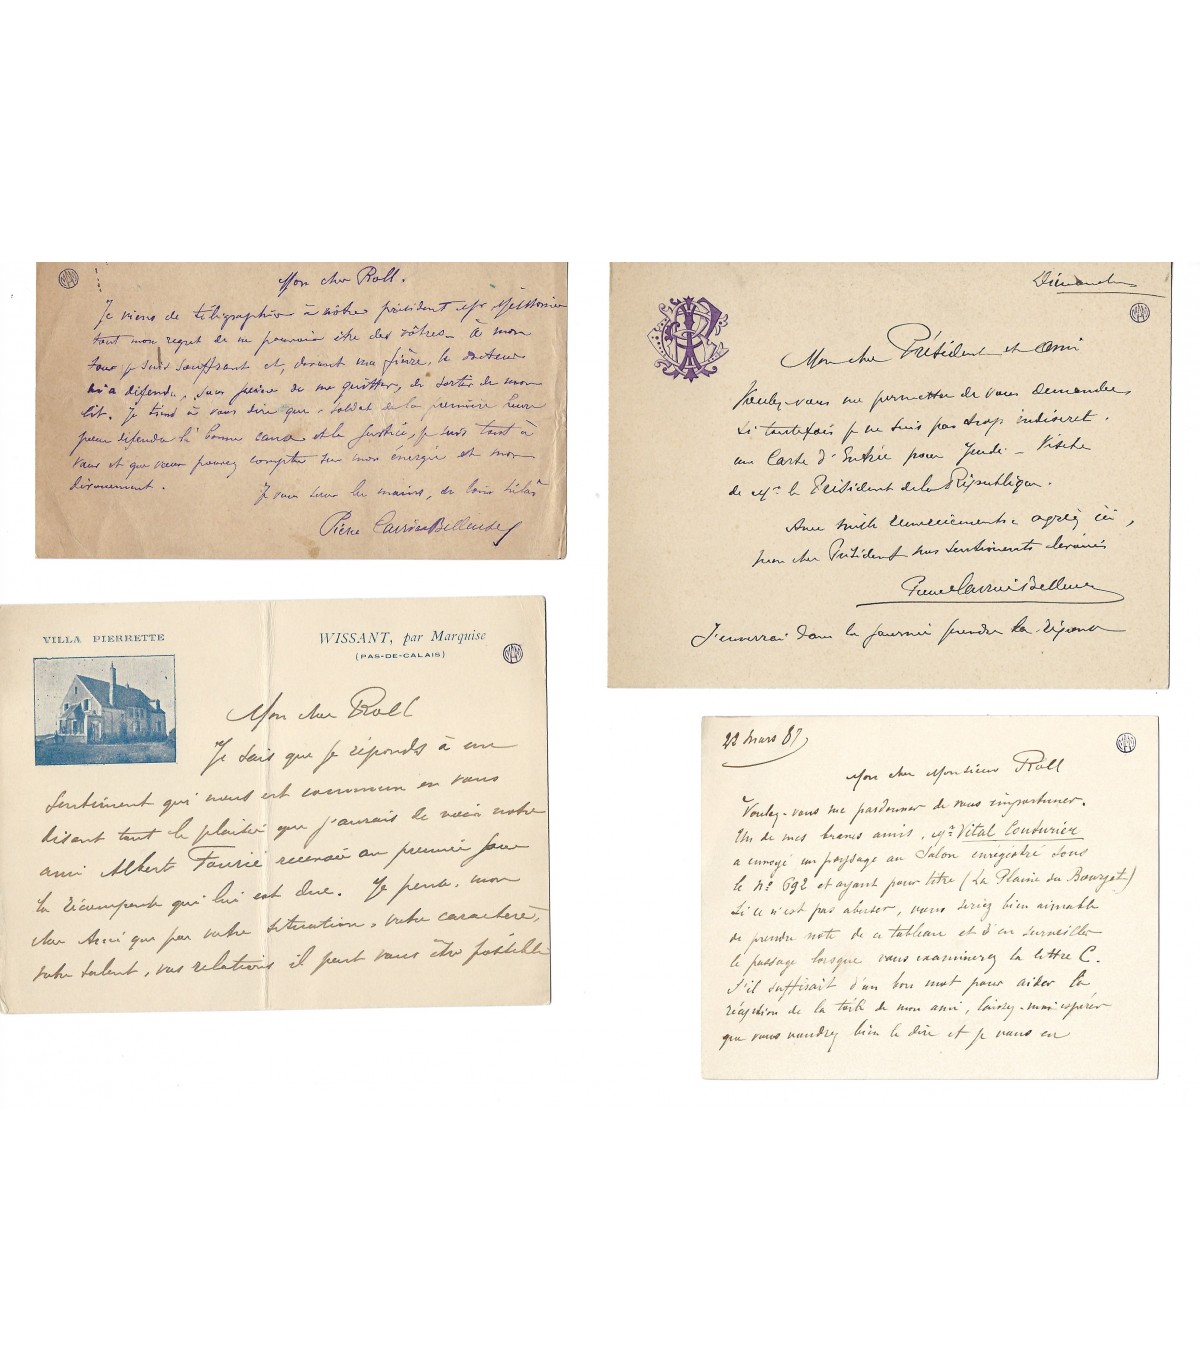 Mon cher Roll.
Je viens de télégraphier à nôtre président Mr Meissonier
tout mon regret de ne pouvoir être des vôtres. à mon
tour je suis souffrant et, devant ma fièvre, le docteur
m'a défendu, sous peine de me quitter, de sortir de mon
lit. Je tiens à vous dire que, soldat de la première heure
pour défendre la bonne cause et la justice, je suis tout à
vous et que vous pouvez compter sur mon énergie et mon
dévouement.
Je vous serre les mains, de loin hélas
Pierre Carrier Belleuse
Dimanche
Mon cher Président et ami
Voulez-vous me permettre de vous demander
si toutefois je ne suis pas trop indiscret
une Carte d'Entrée pour Jeudi - Visite
de Mr le Président de la République.
Avec mille remerciements agréez ici,
mon cher Président mes sentiments dévoués
Pierre Carrier Belleuse
J'enverrai dans la journée prendre la réponse
VILLA PIERRETTE
WISSANT, par Marquise
(PAS-DE-CALAIS)
Mon cher Roll
Je sais que je réponds à un
sentiment qui nous est commun en vous
disant tout le plaisir que j'aurais de voir notre
ami Albert Fourié recevoir au premier jour
la récompense qui lui est due. Je pense, mon
cher Ami que par votre situation, votre caractère,
votre talent, vos relations il peut vous être possible
22 Mars 87
Mon cher Monsieur Roll
Voulez-vous me pardonner de vous importuner.
Un de mes braves amis, Mr Vital Couturier
a envoyé un paysage au Salon enrégistré sous
le No 692 et ayant pour titre (La Plaine du Bourget)
Si ce n'est pas abuser, vous seriez bien aimable
de prendre note de ce tableau et d'en surveiller
le passage lorsque vous examinerez la lettre C.
S'il suffisait d'un bon mot pour aider la
réception de la toile de mon ami, laissez-moi espérer
que vous voudrez bien le dire et je vous en